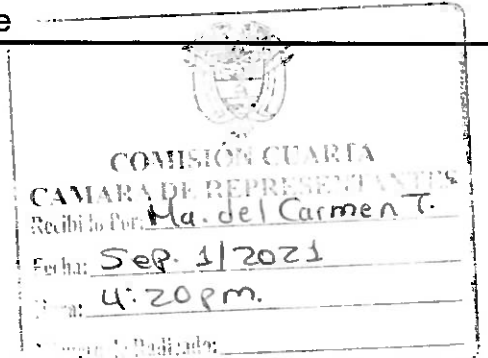 e
COMISIÓN CUARTA
CAMARA DE REPRESENTANTES
Recibido Por: Ma. del Carmen T.
Fecha: Sep. 1/2021
Hora: 4:20 pm.
Número de Radicado: